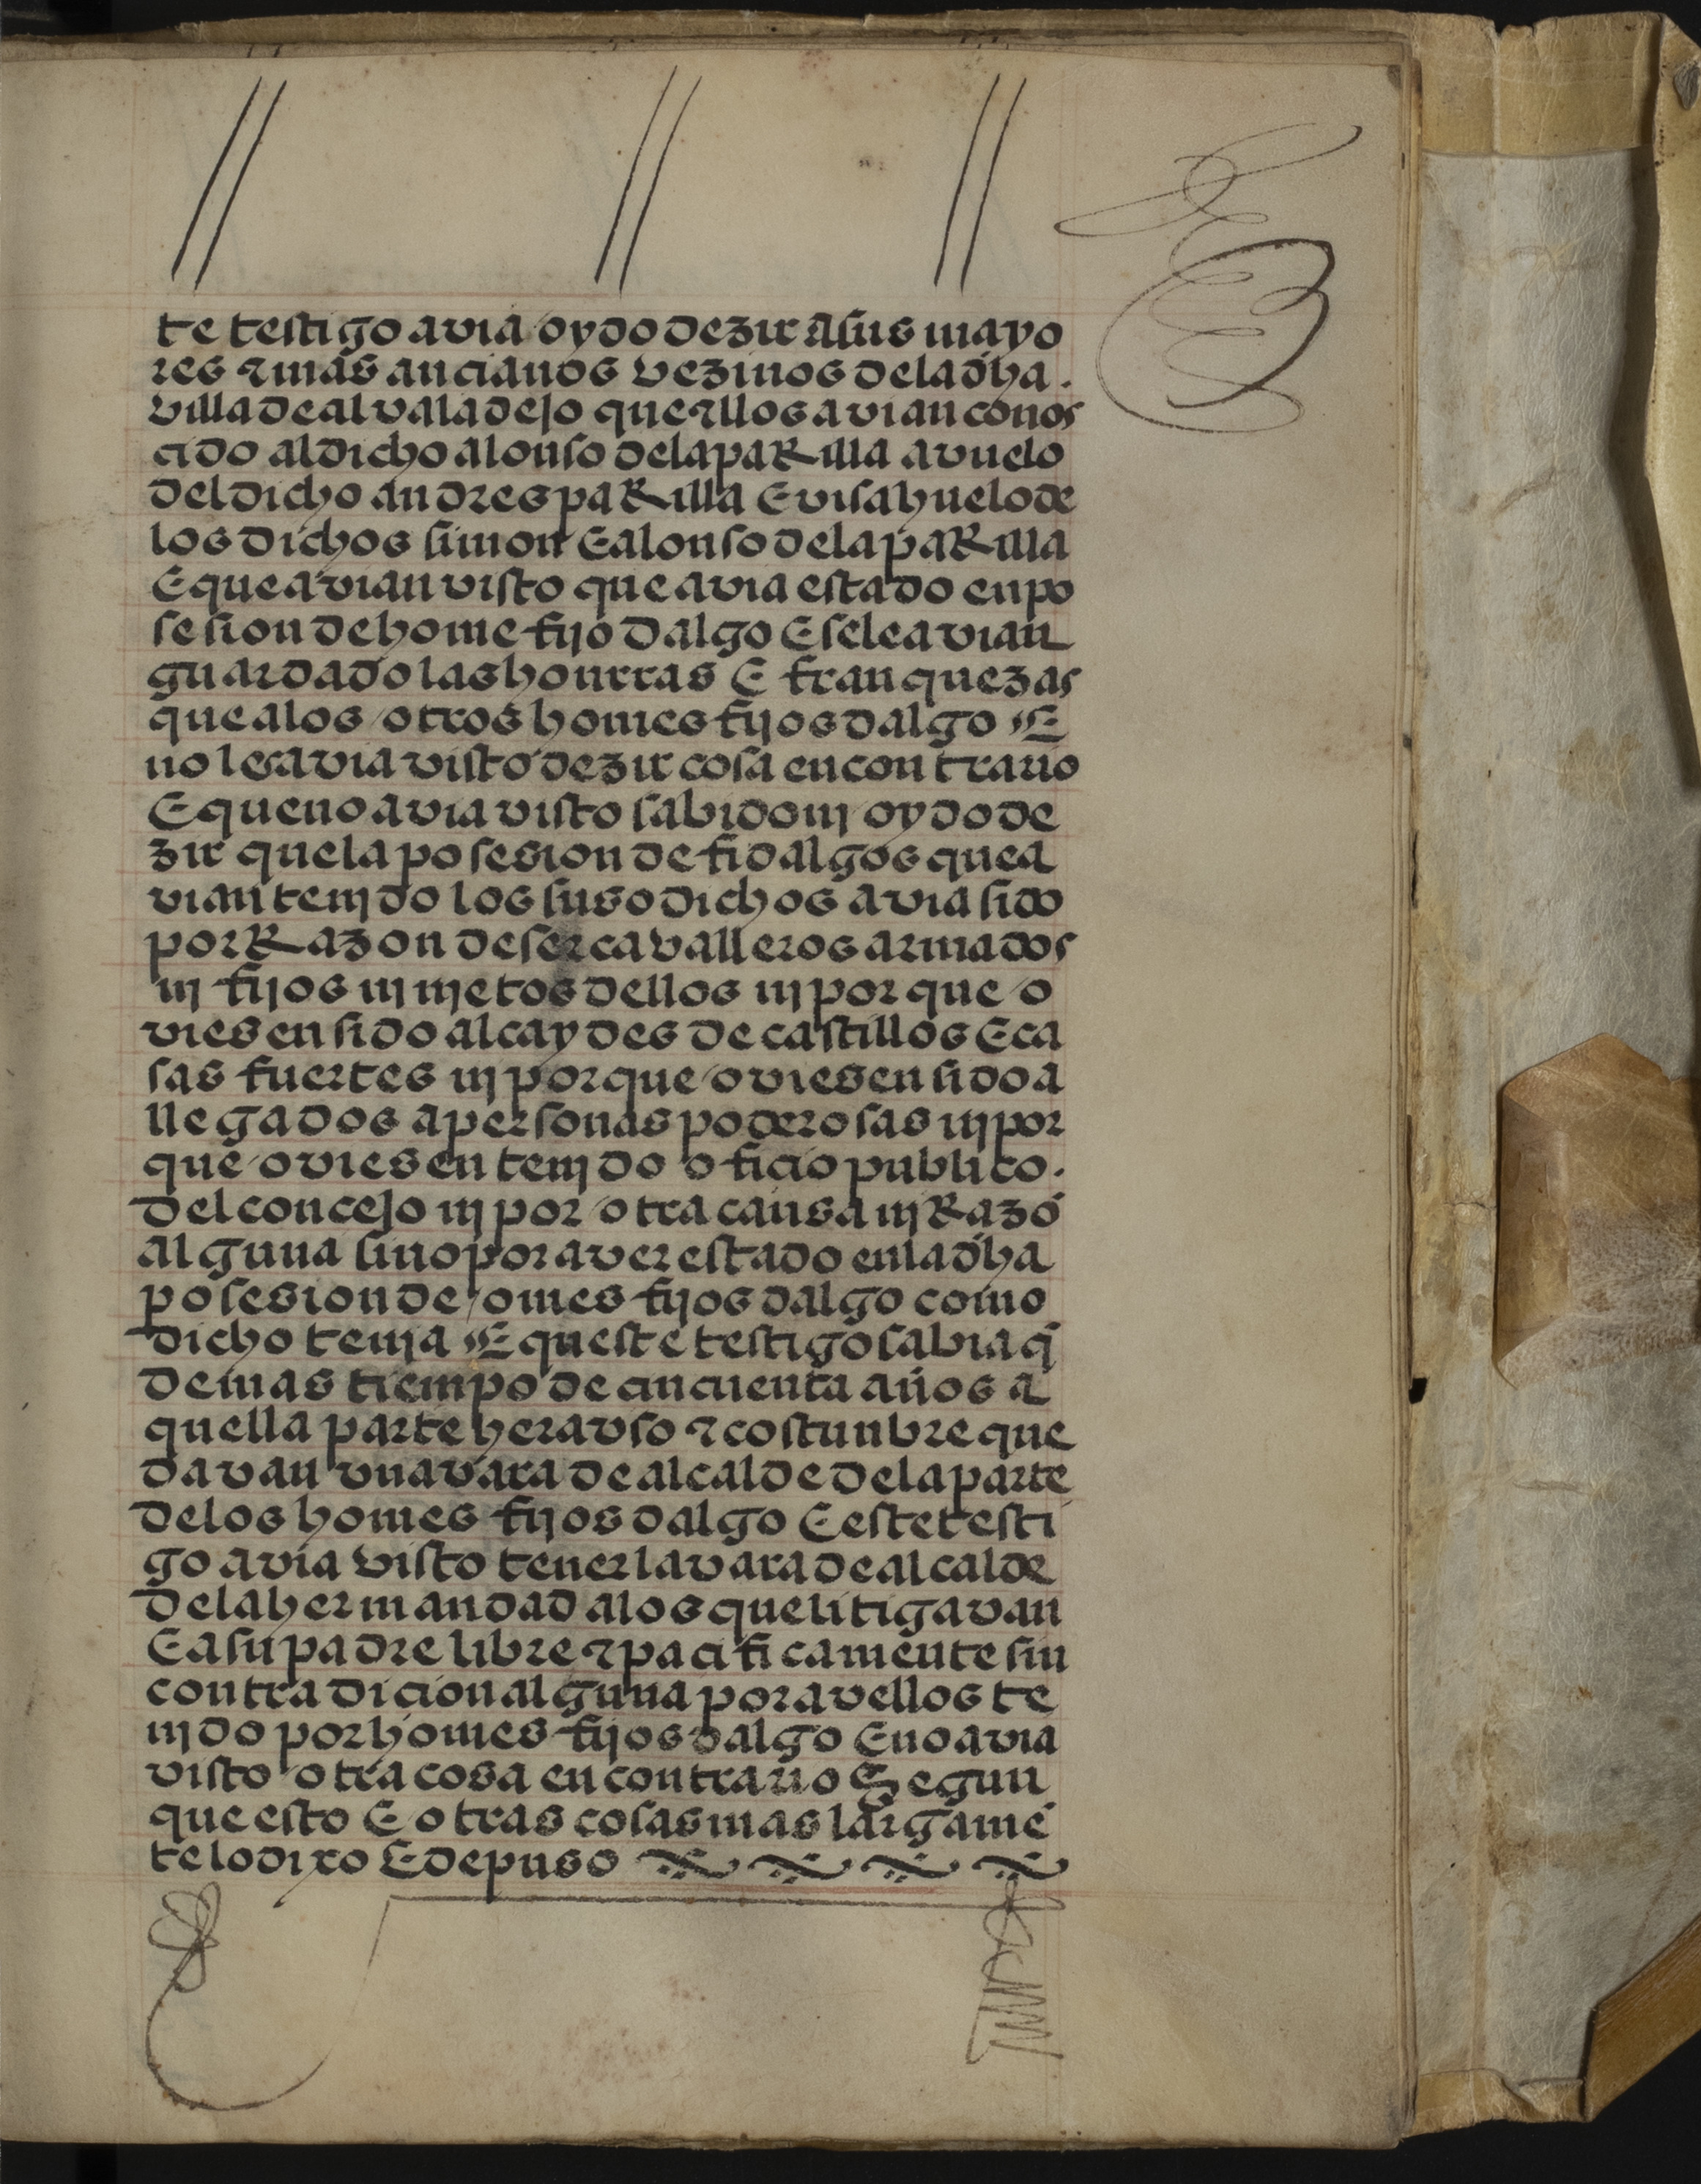 te testigo avia oydo dezir a sus mayo
res ⁊ mas ancianos vezinos dela dha.
villa de alvaladejo que ellos avian conos
cido al dicho alonso dela paRilla avuelo
del dicho andres paRilla E visahuelo de
los dichos simon E alonso dela paRilla
E que avian visto que avia estado en po
sesion de home fijo dalgo E se le avian
guardado las honrras E franquezas
que a los otros homes fijos dalgo E
no les avia visto dezir cosa en contrario
E que no avia visto sabido nj oydo de
zir que la posesion de fidalgos que a
vian tenjdo los suso dichos avia sido
por Razon de ser cavalleros armados
nj fijos nj njetos dellos nj por que o
viesen sido alcaydes de castillos E ca
sas fuertes nj por que oviesen sido a
llegados a personas poderosas nj por
que oviesen tenjdo oficio publico.
del concejo nj por otra causa nj Razō
alguna sino por aver estado en la dha
posesion de omes fijos dalgo como
dicho tenja E queste testigo sabia q̄
de mas tiempo de cincuenta años a
quella parte hera vso ⁊ costunbre que
davan vna vara de alcalde dela parte
delos homes fijos dalgo E este testi
go avia visto tener la vara de alcalde
dela hermandad a los que litigavan
E a su padre libre ⁊ pacificamente sin
contradicion alguna por avellos te
njdo por homes fijos dalgo E no avia
visto otra cosa en contrario Segun
que esto E otras cosas mas largamē
te lo dixo E depuso